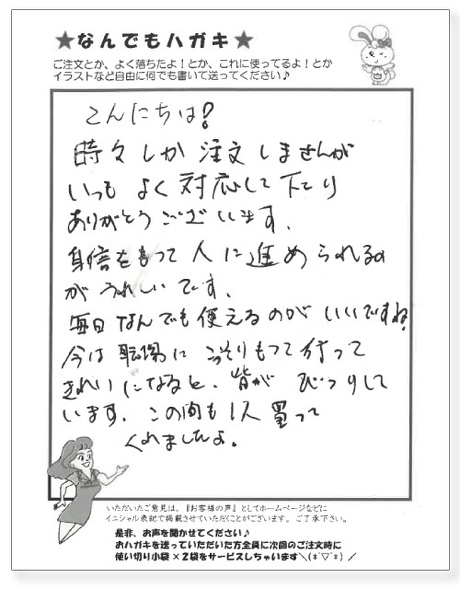 ★なんでもハガキ★
ご注文とか、よく落ちたよ！とか、これに使ってるよ！とか
イラストなど自由に何でも書いて送ってください♪
こんにちは？
時々しか注文しませんが
いつもよく対応して下さり
ありがとうございます。
身信をもって人に進められるの
がうれしいです。
毎日なんでも使えるのがいいですね。
今は職場にこっそりもって行って
きれいになると、皆がびっくりして
います。この間も1人買って
くれましたよ。
いただいたご意見は、『お客様の声』としてホームページなどに
イニシャル表記で掲載させていただくことがございます。ご了承下さい。
是非、お声を聞かせてください♪
おハガキを送っていただいた方全員に次回のご注文時に
使い切り小袋×2袋をサービスしちゃいます＼(*´▽`*)／